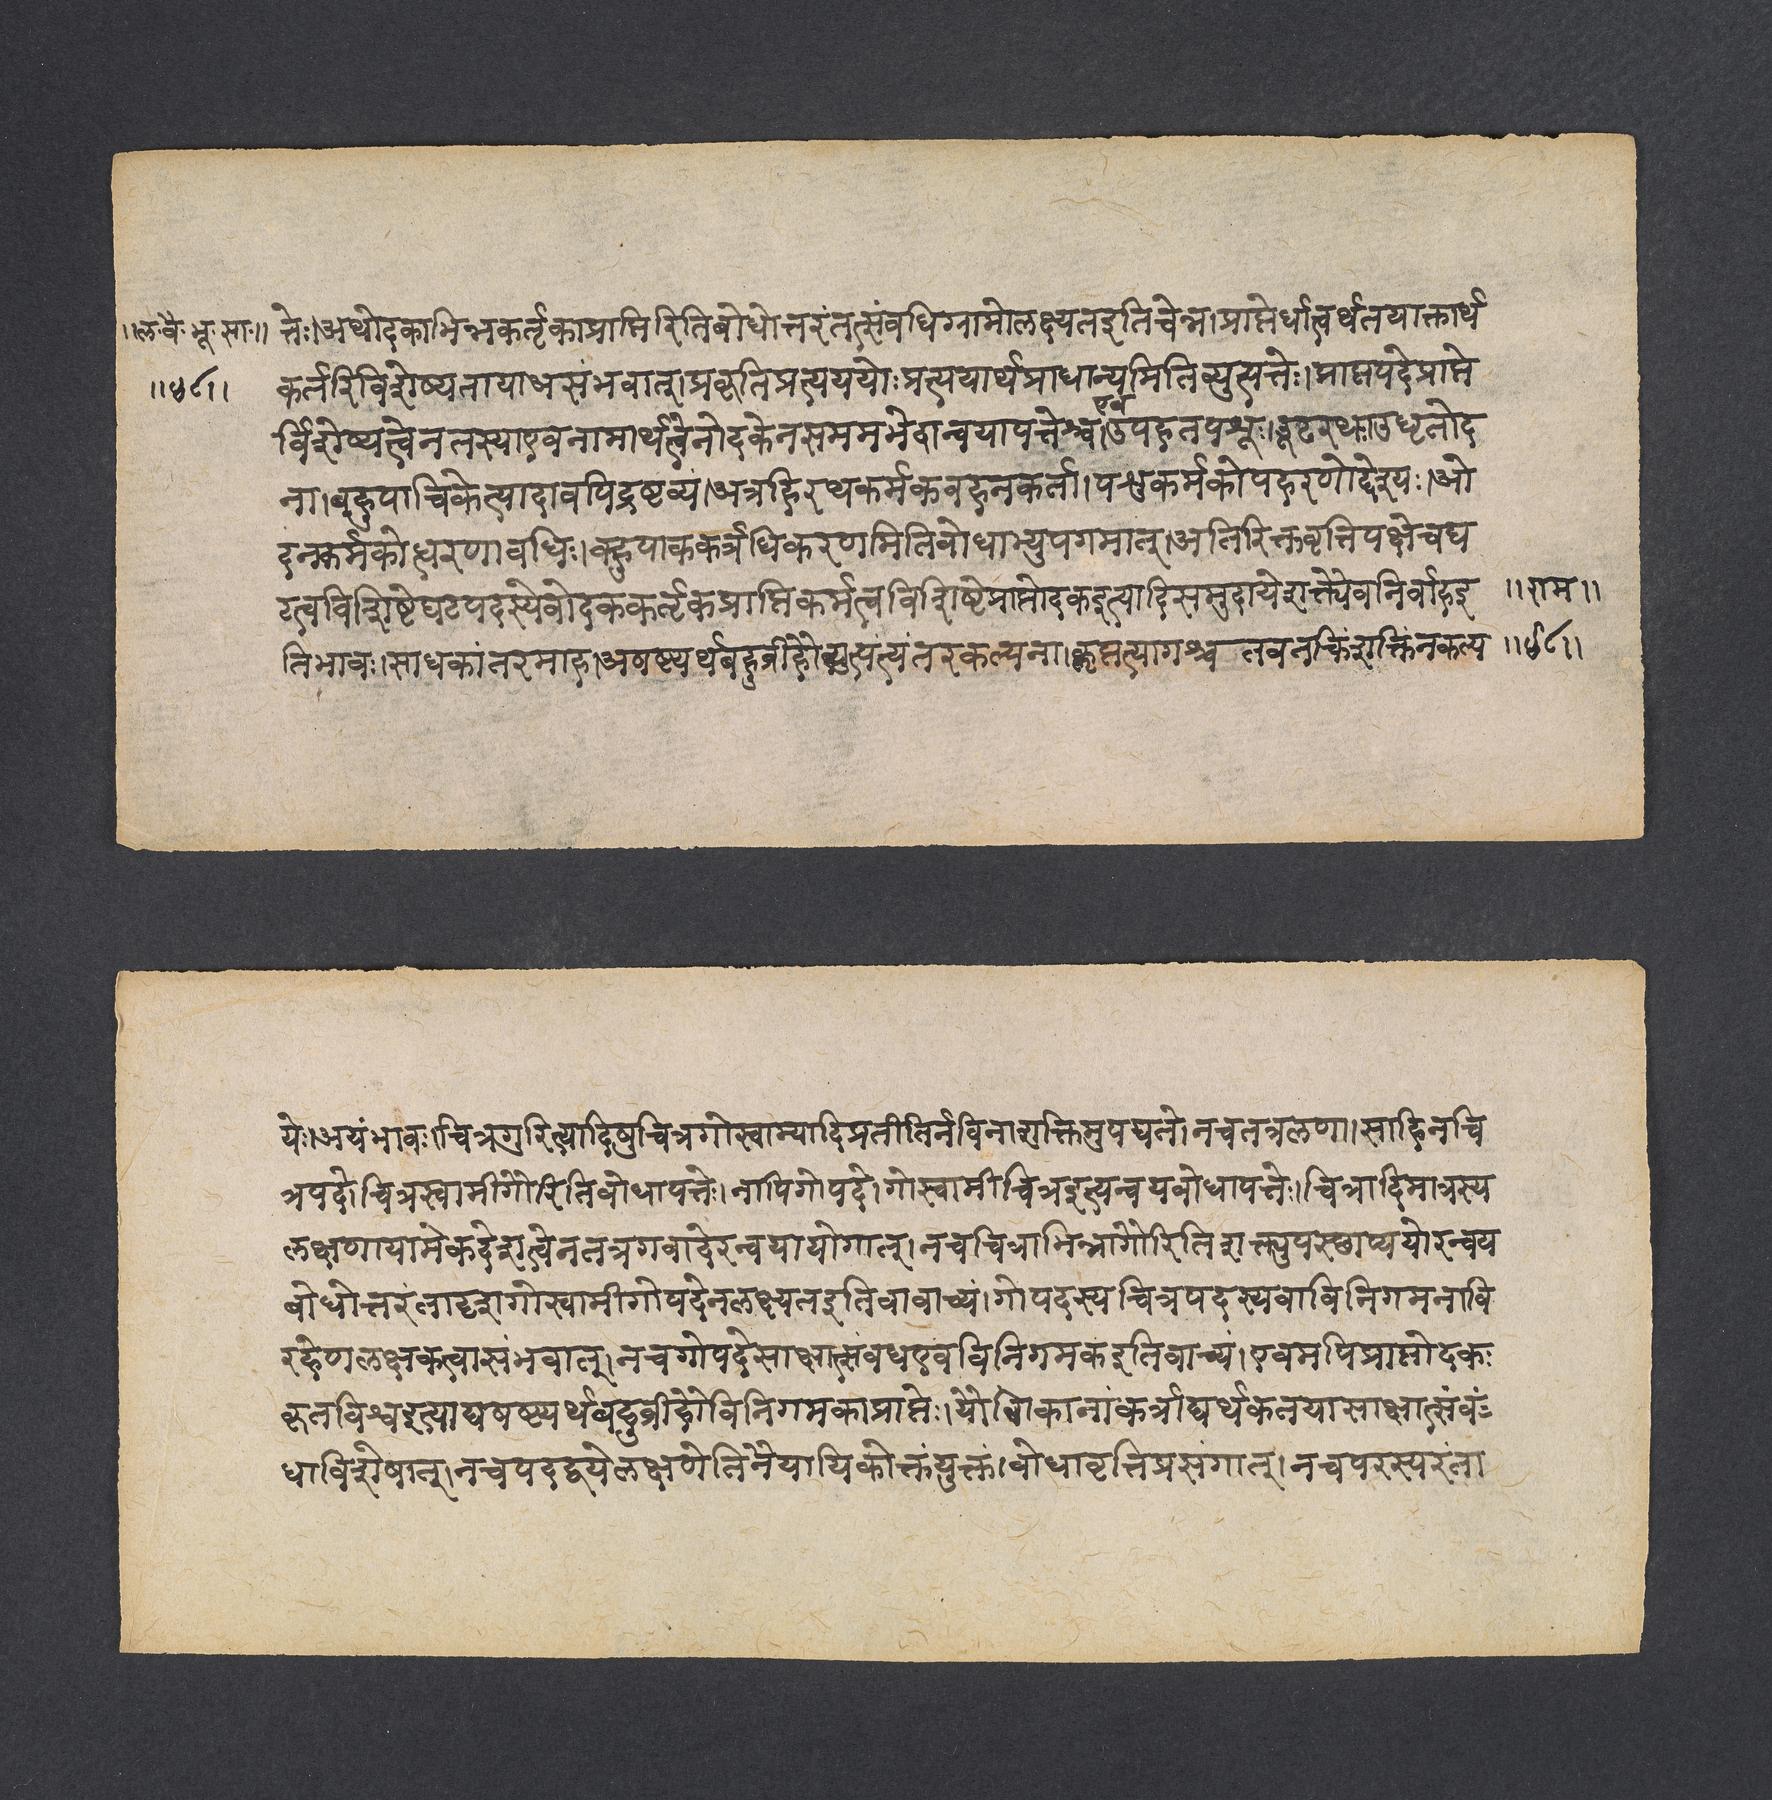 ॥ल॰वै॰भू॰सा॰॥ त्तेः।अथोदकाभिन्नकर्तृकाप्राप्तिरितिबोधोत्तरंतत्संबधिग्रामोलक्ष्यतइतिचेन्न।प्राप्तेर्धात्वर्थतयाक्तार्थ
॥५८। कर्तरिविशेष्यतायाअसंभवात्।प्रकृतिप्रत्यययोःप्रत्ययार्थप्राधान्यमितिव्युत्पत्तेः।प्राप्तपदेप्राप्ते
एवं
र्विशेष्यत्वेनतस्याएवनामार्थत्वेनोदकेनसममभेदान्वयापत्तेश्च।उपहृतपशूः।ऊढरथः।उधृतोद
ना।बहुपाचिकेत्यादावपिद्रष्टव्यं।अत्रहिरथकर्मकवहनकर्ता।पशुकर्मकोपहरणोद्देश्यः।ओ
दनकर्मकोध्धरणावधिः।बहुपाककर्त्रधिकरणमितिबोधाभ्युपगमात्।अतिरिक्तवृत्तिपक्षेचघ
टत्वविशिष्टेघटपदस्येवोदककर्तृकप्राप्तिकर्मत्वविशिष्टेप्राप्तोदकइत्यादिसमुदायेशक्त्यैवनिर्वाहइ ॥राम॥
तिभावः।साधकांतरमाह।अषष्ट्यर्थबहुव्रीहौव्युत्पत्त्यंतरकल्पना।कॢप्तत्यागश्च तवतत्किंशक्तिंनकल्प ॥५८।
येः।अयंभावः।चित्रगुरित्यादिषुचित्रगोस्वाम्यादिप्रतीतिर्नविनाशक्तिमुपपद्यते।नचतत्रलणा।साहिनचि
त्रपदे।चित्रस्वामीगौरितिबोधापत्तेः।नापिगोपदे।गोस्वामीचित्रइत्यन्वयबोधापत्तेः।चित्रादिमात्रस्य
लक्षणायामेकदेशत्वेनतत्रगवादेरन्वयायोगात्।नचचित्राभिन्नागौरितिशक्त्युपस्छाप्ययोरन्वय
बोधोत्तरंतादृशगोस्वामीगोपदेनलक्ष्यतइतिवावाच्यं।गोपदस्यचित्रपदस्यवाविनिगमनावि
रहेणलक्षकत्वासंभवात्।नचगोपदेसाक्षात्संबधएवविनिगमकइतिवाच्यं।एवमपिप्राप्तोदकः
कृतविश्वइत्याद्यषष्ट्यर्थबहुव्रीहौविनिगमकाप्राप्तेः।यौगिकानांकर्त्राद्यर्थकतयासाक्षात्संबं
धाविशेषात्।नचपदद्वयेलक्षणेतिनैयायिकोक्तंयुक्तं।बोधावृत्तिप्रसंगात्।नचपरस्परंता